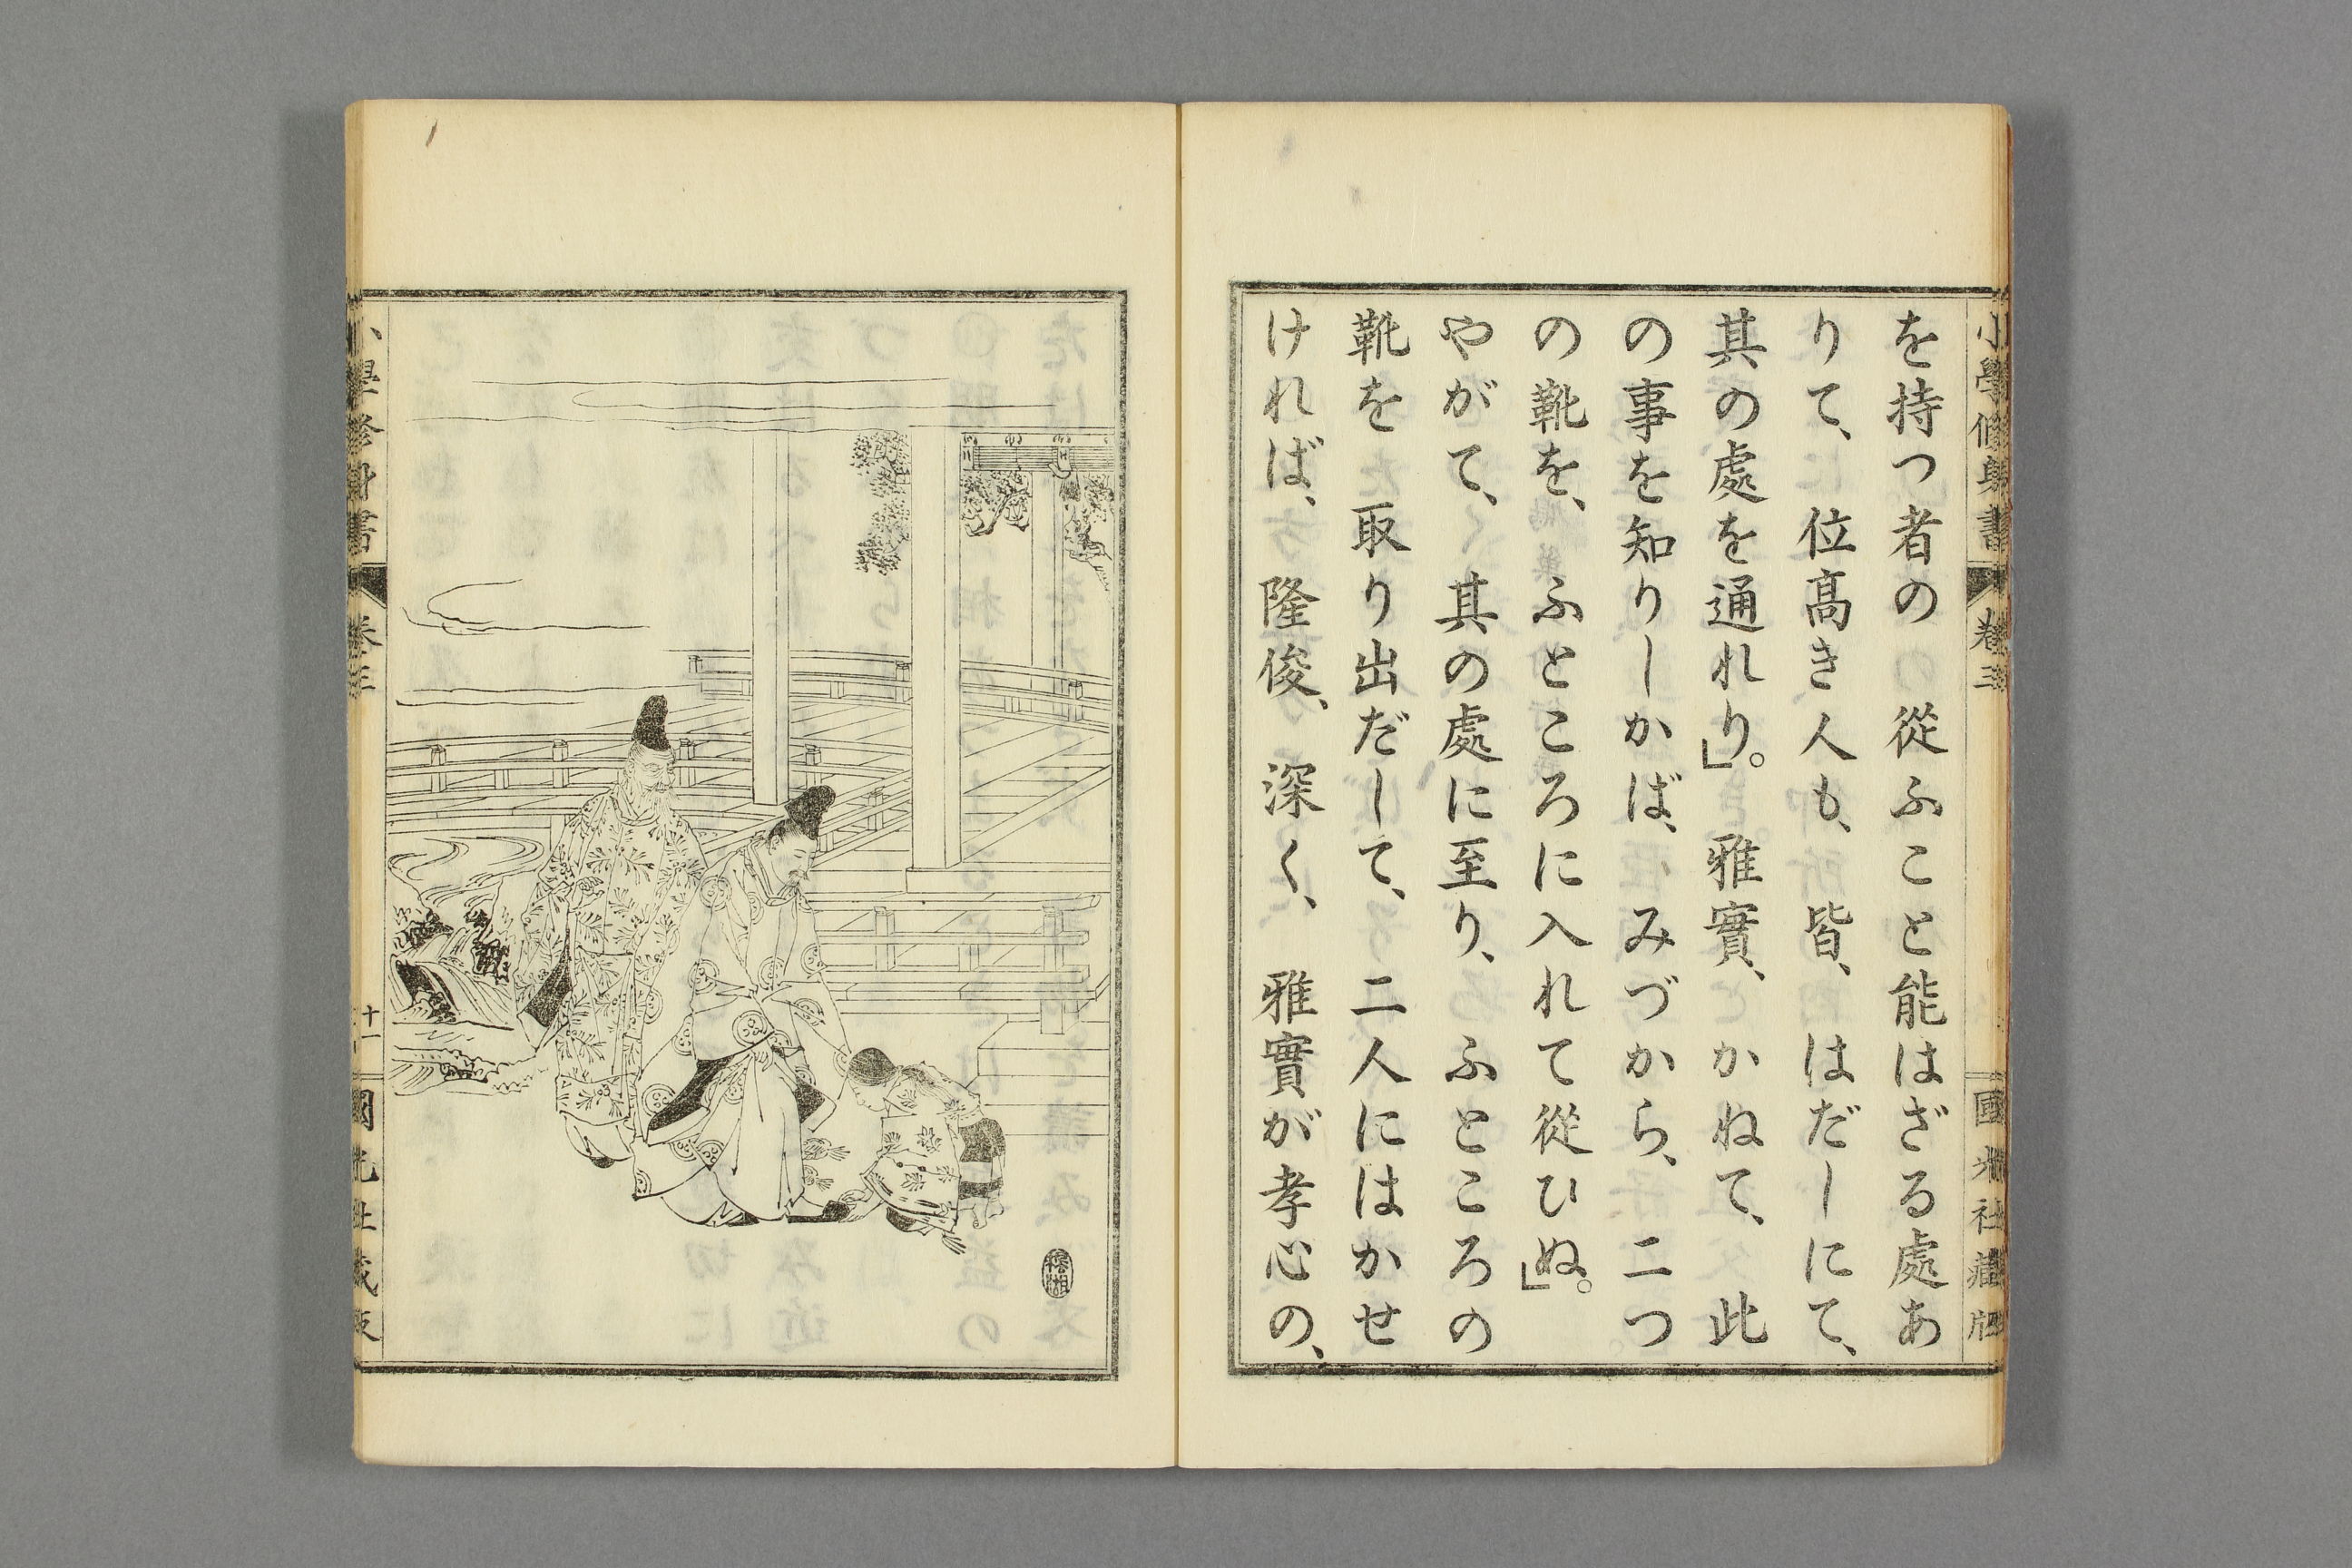 小學修身書 卷三 國光社藏版
を持つ者の 從ふこと能はざる處あ
りて、位髙き人も、皆、はだしにて、
其の處を通れり」。 雅實、かねて、此
の事を知りしかば、みづから、二つ
の靴を、ふところに入れて從ひぬ」。
やがて、其の處に至り、ふところの
靴を 取り出だして、二人にはかせ
ければ、隆俊、深く、雅實が孝心の、
小學修身書 卷三 十一 國光社藏版